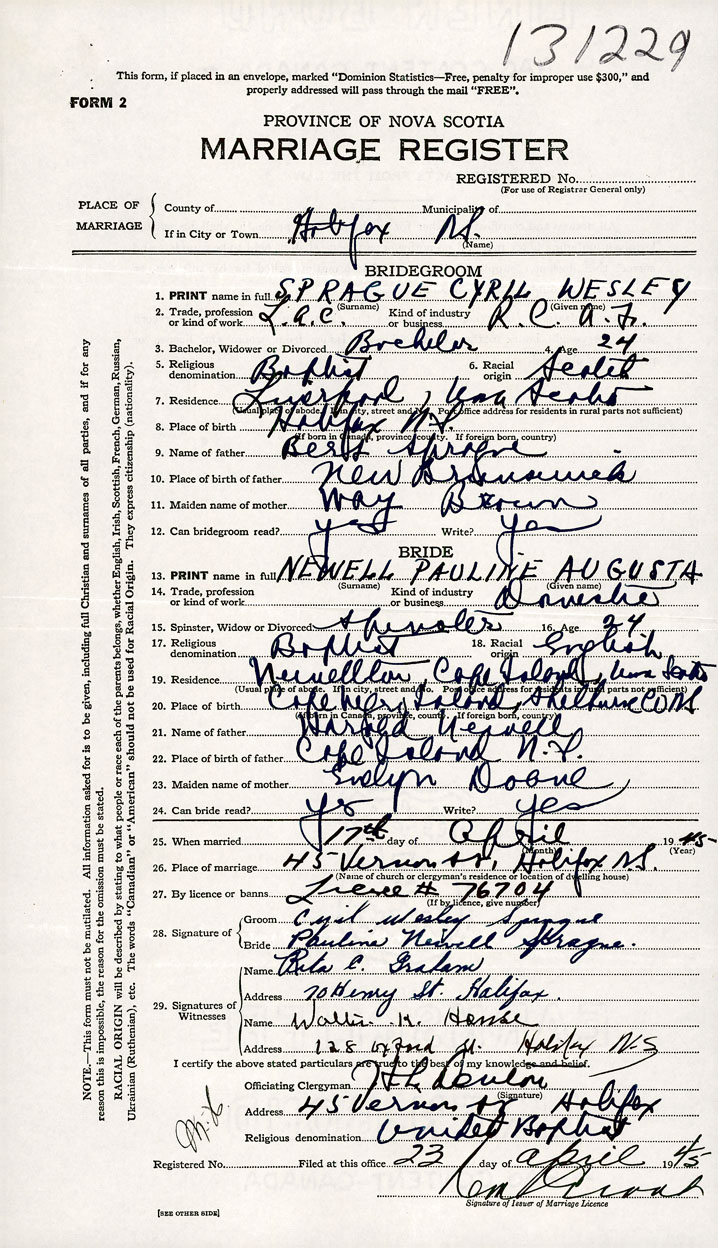 131229
This form, if placed in an envelope, marked "Dominion Statistics—Free, penalty for improper use $300," and
properly addressed will pass through the mail "FREE".
FORM 2
PROVINCE OF NOVA SCOTIA
MARRIAGE REGISTER
REGISTERED No.
(For use of Registrar General only)
PLACE OF MARRIAGE
County of Municipality of
If in City or Town Halifax N.S.
(Name)
BRIDEGROOM
1. PRINT name in full SPRAGUE CYRIL WESLEY
(Surname) (Given name)
2. Trade, profession or kind of work L.A.C. Kind of industry or business R.C.A.F.
3. Bachelor, Widower or Divorced Bachelor 4. Age 24
5. Religious denomination Baptist 6. Racial origin Scotch
7. Residence Liverpool, Nova Scotia
(Usual place of abode. If in city, street and No. Post office address for residents in rural parts not sufficient)
8. Place of birth Halifax N.S.
(If born in Canada, province, county. If foreign born, country)
9. Name of father Bert Sprague
10. Place of birth of father New Brunswick
11. Maiden name of mother May Brown
12. Can bridegroom read? yes Write? yes
BRIDE
13. PRINT name in full NEWELL PAULINE AUGUSTA
(Surname) (Given name)
14. Trade, profession or kind of work Kind of industry or business Domestic
15. Spinster, Widow or Divorced Spinster 16. Age 24
17. Religious denomination Baptist 18. Racial origin English
19. Residence Newellton, Cape Island, Nova Scotia
(Usual place of abode. If in city, street and No. Post office address for residents in rural parts not sufficient)
20. Place of birth Cape Negro Island, Shelburne Co N.S.
(If born in Canada, province, county. If foreign born, country)
21. Name of father Harold Newell
22. Place of birth of father Cape Island N.S.
23. Maiden name of mother Evelyn Doane
24. Can bride read? yes Write? yes
25. When married 17th day of April 1945
(Month) (Year)
26. Place of marriage 45 Vernon St, Halifax N.S.
(Name of church or clergyman's residence or location of dwelling house)
27. By licence or banns License # 76704
(If by licence, give number)
28. Signature of
Groom Cyril Wesley Sprague
Bride Pauline Newell Sprague.
29. Signatures of Witnesses
Name Rita E. Graham
Address 70 Henry St. Halifax.
Name Walter H.
Address 128 Oxford St. Halifax N.S
I certify the above stated particulars are true to the best of my knowledge and belief.
Officiating Clergyman
(Signature)
Address 45 Vernon St Halifax
Religious denomination United Baptist
Registered No. Filed at this office 23 day of April 1945
Signature of Issuer of Marriage Licence
[SEE OTHER SIDE]
NOTE.—This form must not be mutilated. All information asked for is to be given, including full Christian and surnames of all parties, and if for any
reason this is impossible, the reason for the omission must be stated.
RACIAL ORIGIN will be described by stating to what people or race each of the parents belongs, whether English, Irish, Scottish, French, German, Russian,
Ukrainian (Ruthenian), etc. The words "Canadian" or "American" should not be used for Racial Origin. They express citizenship (nationality).